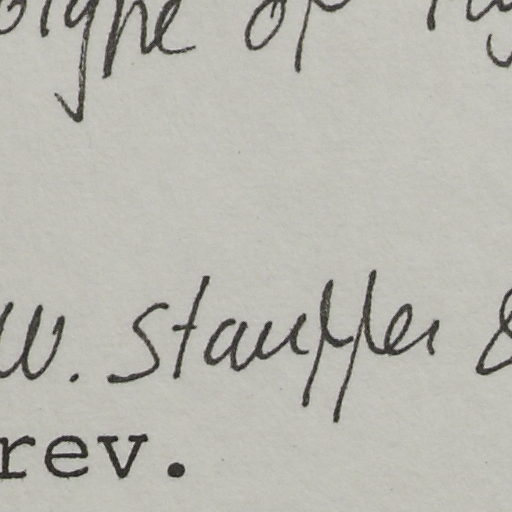 otype of
W. Stauffer &
rev.